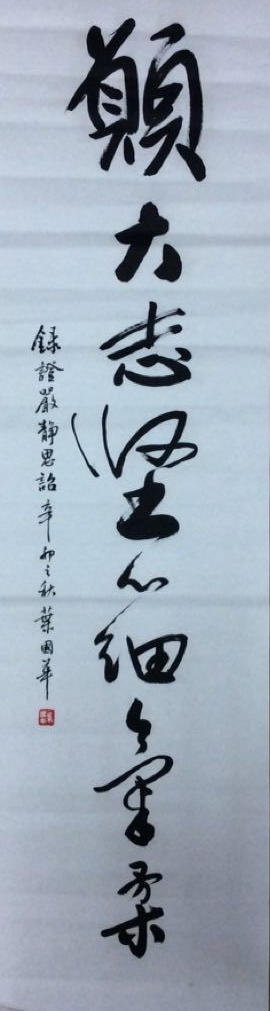 願大志堅心細氣柔
錄證嚴靜思語辛卯之秋葉國華